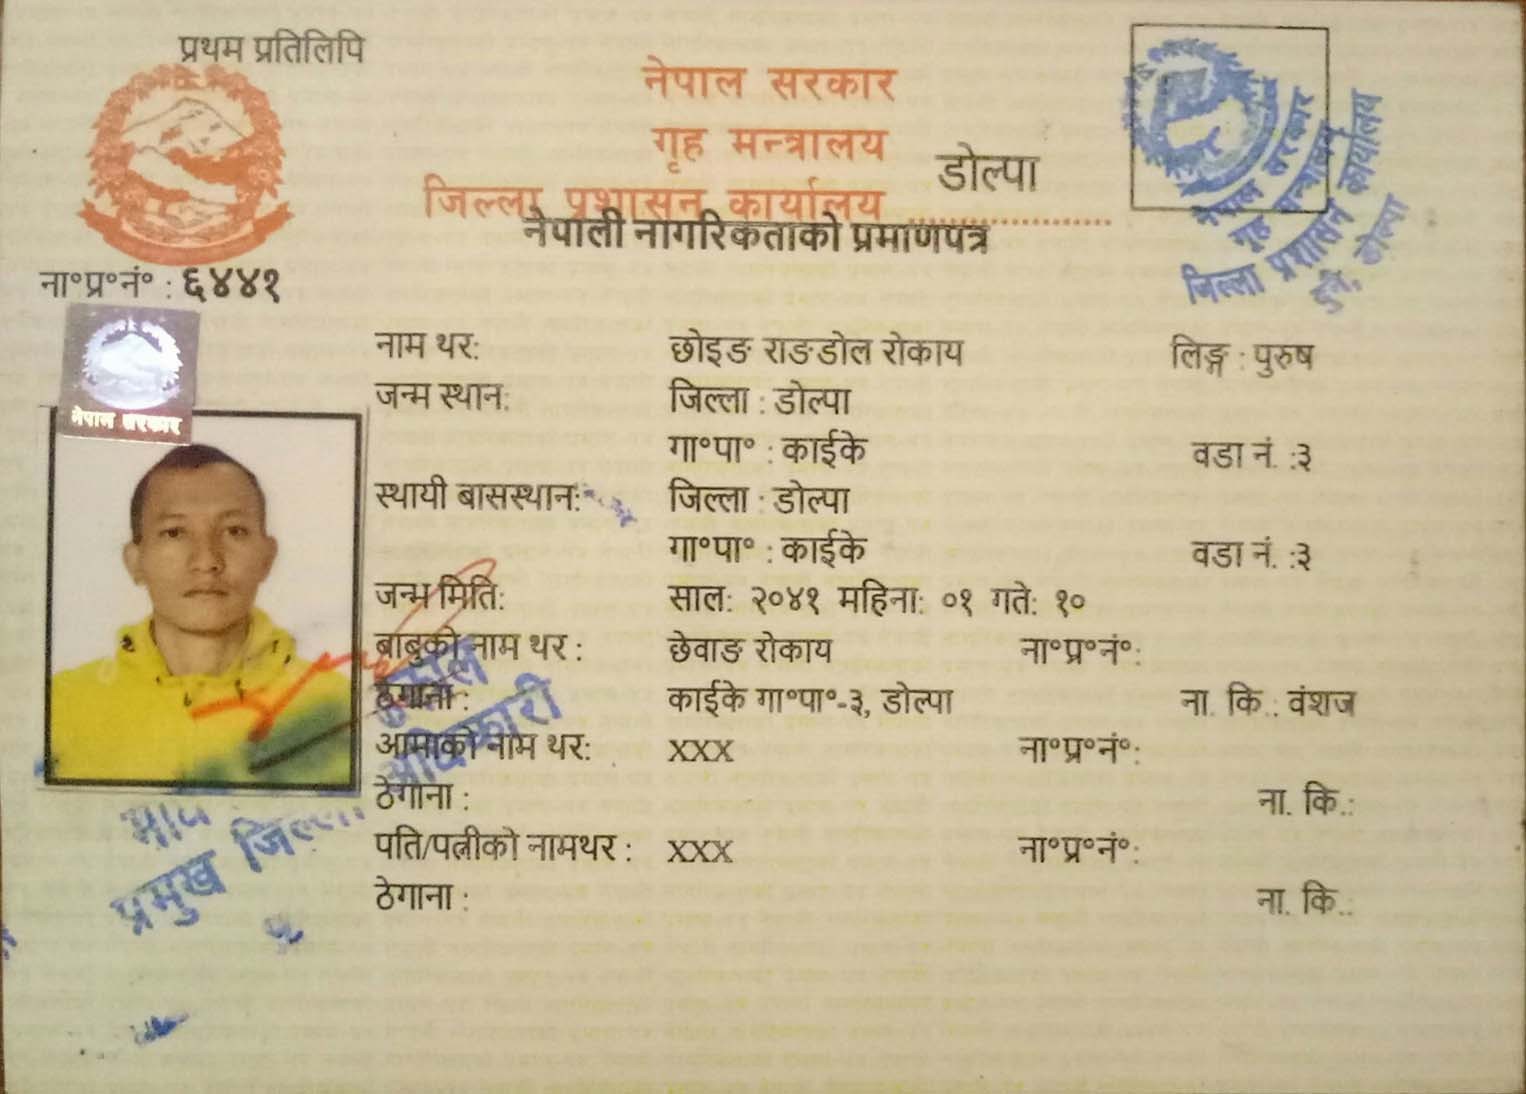 प्रथम प्रतिलिपि
नेपाल सरकार
गृह मन्त्रालय
जिल्ला प्रशासन कार्यालय .................... डोल्पा
नेपाली नागरिकताको प्रमाणपत्र
नेपाल सरकार
गृह मन्त्रालय
जिल्ला प्रशासन कार्यालय
डोल्पा
ना॰प्र॰नं॰ : ६४४१
नेपाल सरकार
नाम थर: छोइङ राङडोल रोकाय लिङ्ग : पुरुष
जन्म स्थान: जिल्ला : डोल्पा
गा॰पा॰ : काईके वडा नं. :३
स्थायी बासस्थान: जिल्ला : डोल्पा
गा॰पा॰ : काईके वडा नं. :३
जन्म मिति: साल: २०४१ महिना: ०१ गते: १०
बाबुको नाम थर : छेवाङ रोकाय ना॰प्र॰नं॰:
ठेगाना : काईके गा॰पा॰-३, डोल्पा ना. कि.: वंशज
आमाको नाम थर: XXX ना॰प्र॰नं॰:
ठेगाना : ना. कि.:
पति/पत्नीको नामथर : XXX ना॰प्र॰नं॰:
ठेगाना : ना. कि.:
प्रमुख जिल्ला अधिकारी